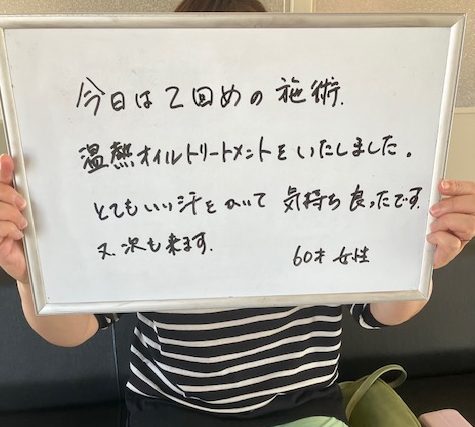 今日は2回めの施術.
温熱オイルトリートメントをいたしました。
とてもいい汗をかいて 気持ち良ったです.
又.次も来ます.
60才 女性